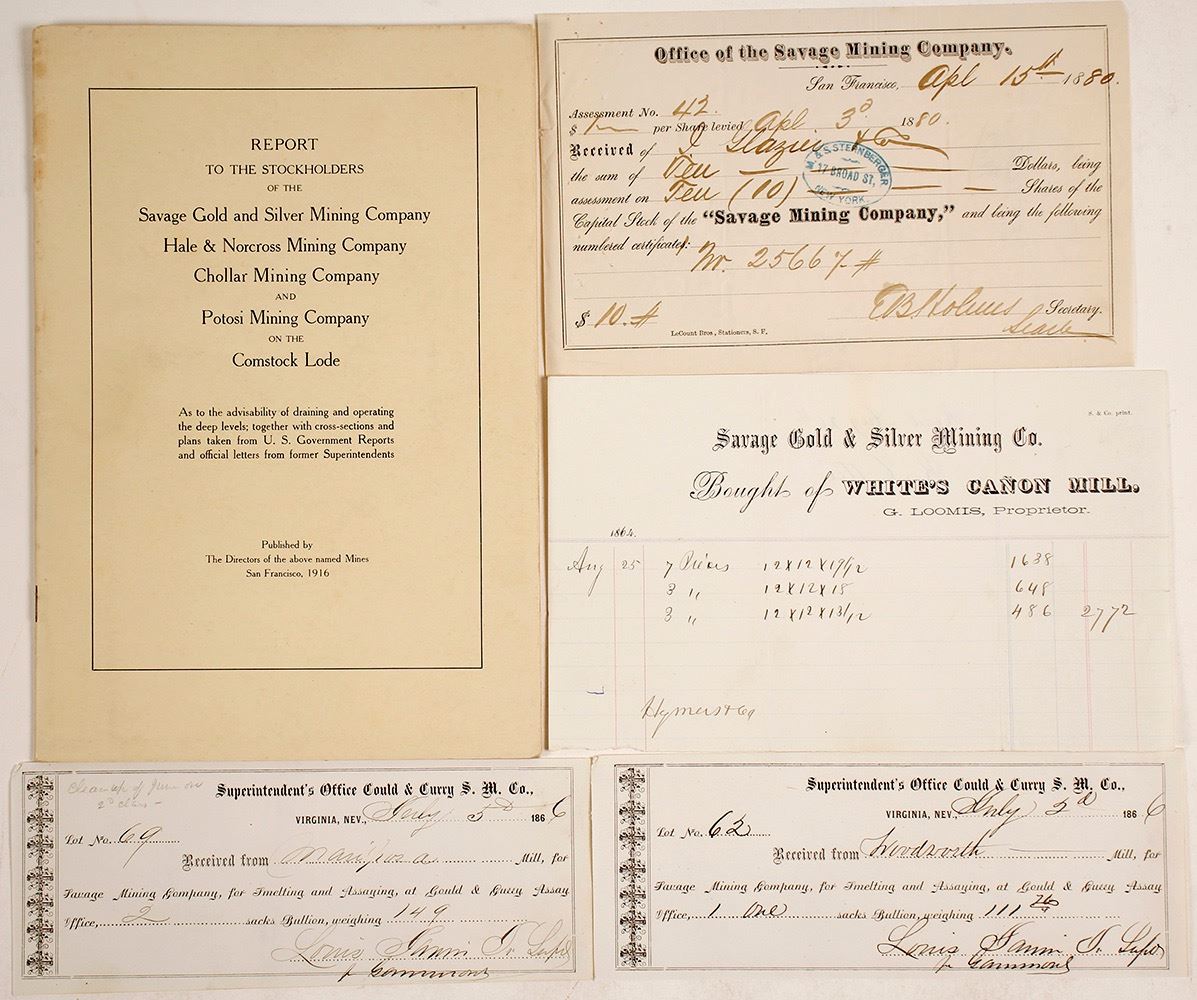 REPORT
TO THE STOCKHOLDERS
OF THE
Savage Gold and Silver Mining Company
Hale & Norcross Mining Company
Chollar Mining Company
AND
Potosi Mining Company
ON THE
Comstock Lode
As to the advisability of draining and operating
the deep levels; together with cross-sections and
plans taken from U. S. Government Reports
and official letters from former Superintendents
Published by
The Directors of the above named Mines
San Francisco, 1916
Office of the Savage Mining Company.
San Francisco, Apl 15th 1880.
Assessment No. 42.
$ 1 per Share levied Apl. 3d 1880.
Received of J Glazier & Co
the sum of Ten Dollars, being
assessment on Ten (10) Shares of the
Capital Stock of the "Savage Mining Company," and being the following
numbered certificates:
No. 25667 #
$ 10.#
EB Holmes Secretary.
LeCount Bros., Stationers, S. F.
M. & S. STERNBERGER
17 BROAD ST,
NEW YORK
S. & Co. print.
Savage Gold & Silver Mining Co.
Bought of WHITE'S CAÑON MILL.
G. LOOMIS, Proprietor.
1864.
Aug 25 7 Pieces 12x12x19/12 1638
3 " 12x12x18 648
3 " 12x12x13/12 486 2772
Hymers & Co
Clean up of June ore
2d class -
Superintendent's Office Gould & Curry S. M. Co.,
VIRGINIA, NEV., July 3d 1866
Lot No. 69
Received from Mariposa Mill, for
Savage Mining Company, for Smelting and Assaying, at Gould & Curry Assay
Office, 2 sacks Bullion, weighing 149
Louis Janin Jr Supt
Superintendent's Office Gould & Curry S. M. Co.,
VIRGINIA, NEV., July 2d 1866
Lot No. 62
Received from Woodworth Mill, for
Savage Mining Company, for Smelting and Assaying, at Gould & Curry Assay
Office, 1 One sacks Bullion, weighing 111
Louis Janin Jr Supt